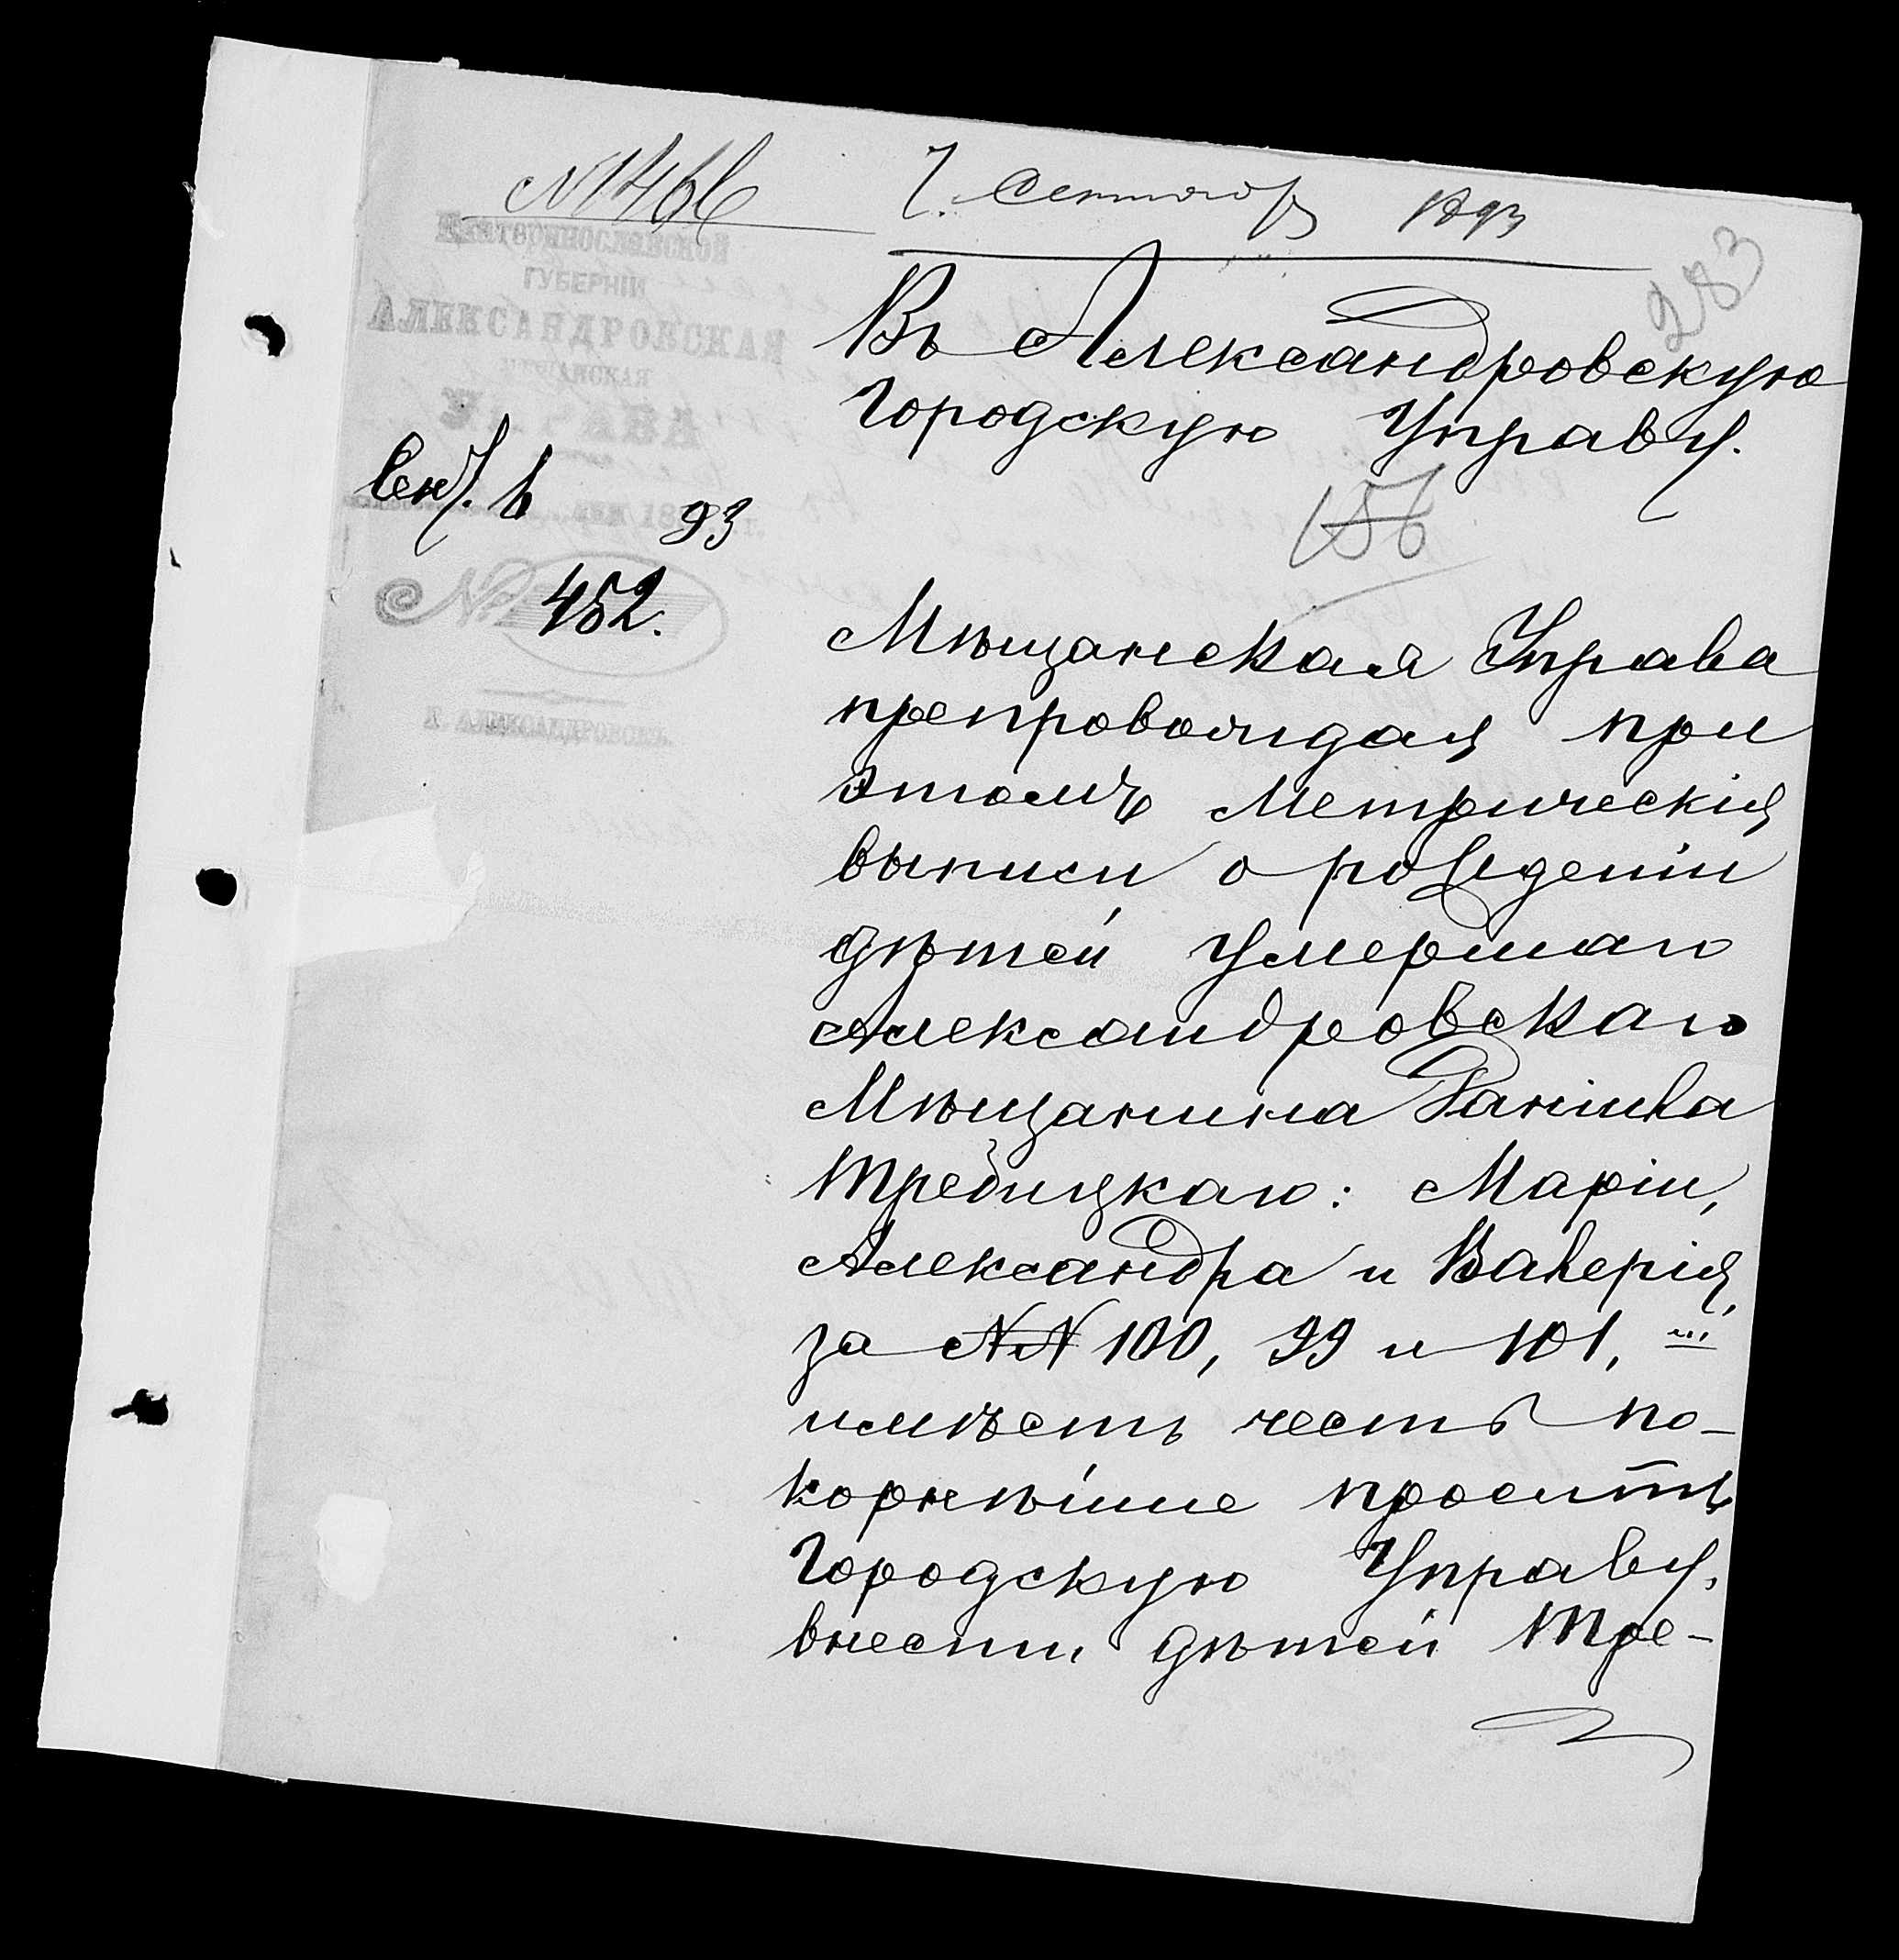 № 1466
7. Сентября 1893
283
Екатеринославской
ГУБЕРНІИ
АЛЕКСАНДРОВСКАЯ
МѢЩАНСКАЯ
УПРАВА
Сен. 6 дня 1893 г.
№ 452.
Г. АЛЕКСАНДРОВСКЪ.
Въ Александровскую
Городскую Управу.
156
Мѣщанская Управа
препровождая при
этомъ Метрическія
выписи о рожденіи
дѣтей умершаго
Александровскаго
Мѣщанина Даніила
Требицкаго: Маріи,
Александра и Валерія,
за №№ 100, 99 и 101,
имѣетъ честь по-
корнѣйше просить
Городскую Управу,
внести дѣтей Тре-